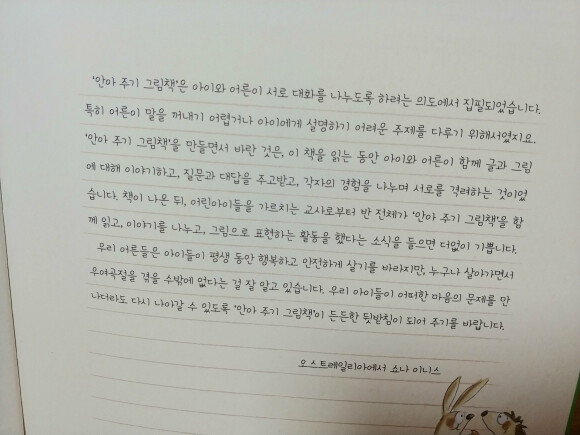 '안아 주기 그림책'은 아이와 어른이 서로 대화를 나누도록 하려는 의도에서 집필되었습니다.
특히 어른이 말을 꺼내기 어렵거나 아이에게 설명하기 어려운 주제를 다루기 위해서였지요.
'안아 주기 그림책'을 만들면서 바란 것은, 이 책을 읽는 동안 아이와 어른이 함께 글과 그림
에 대해 이야기하고, 질문과 대답을 주고받고, 각자의 경험을 나누며 서로를 격려하는 것이었
습니다. 책이 나온 뒤, 어린아이들을 가르치는 교사로부터 반 전체가 '안아 주기 그림책'을 함
께 읽고, 이야기를 나누고, 그림으로 표현하는 활동을 했다는 소식을 들으면 더없이 기쁩니다.
우리 어른들은 아이들이 평생 동안 행복하고 안전하게 살기를 바라지만, 누구나 살아가면서
우여곡절을 겪을 수밖에 없다는 걸 잘 알고 있습니다. 우리 아이들이 어떠한 마음의 문제를 만
나더라도 다시 나아갈 수 있도록 '안아 주기 그림책'이 든든한 뒷받침이 되어 주기를 바랍니다.
오스트레일리아에서 쇼나 이니스